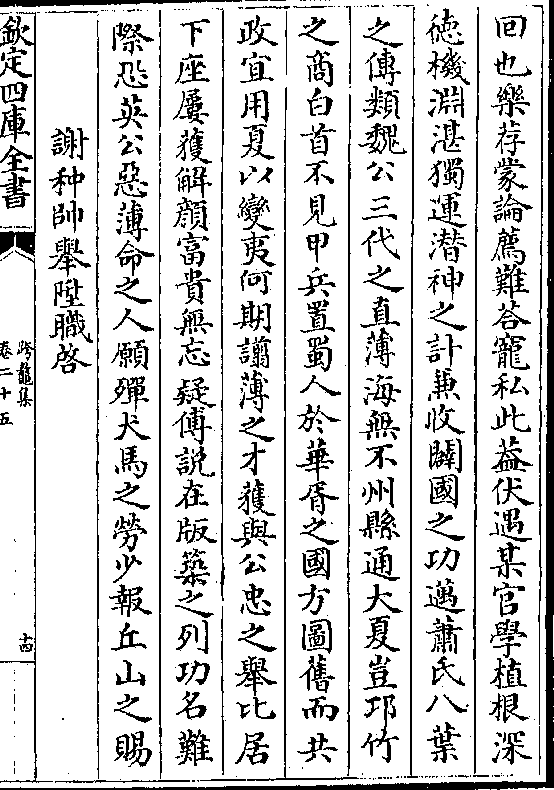 回也樂荐蒙論薦難荅寵私此葢伏遇某官學植根深
徳機淵湛獨運潜神之計兼收闢國之功邁蕭氏八葉
之傳類魏公三代之直薄海無不州縣通大夏豈邛竹
之商白首不見甲兵置蜀人於華胥之國方圖舊而共
政宜用夏以變夷何期謭薄之才獲與公忠之舉比居
下座屢獲解顔富貴無忘疑傅説在版築之列功名難
際恐英公惡薄命之人願殫犬馬之勞少報丘山之賜
謝种帥舉陞職啓
欽定四庫全書
跨鼇集
卷二十五
十四